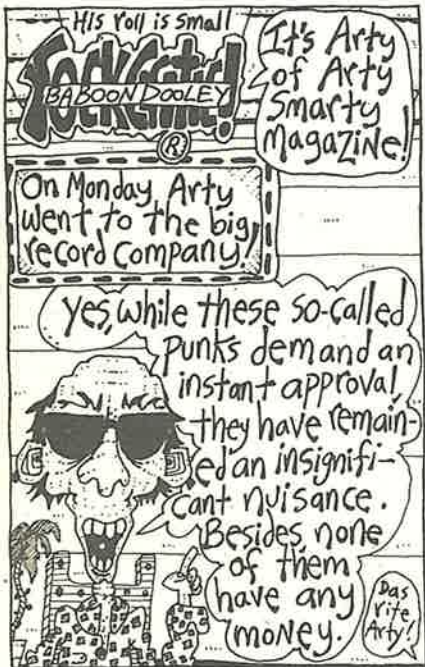 His roll is small
rockcritic!
BABOON DOOLEY
R
It's Arty
of Arty
Smarty
Magazine!
On Monday Arty
went to the big
record company!
Yes, while these so-called
punks demand an
instant approval
they have remain-
ed an insignifi-
cant nuisance.
Besides, none
of them
have any
money.
Das
rite
Arty!